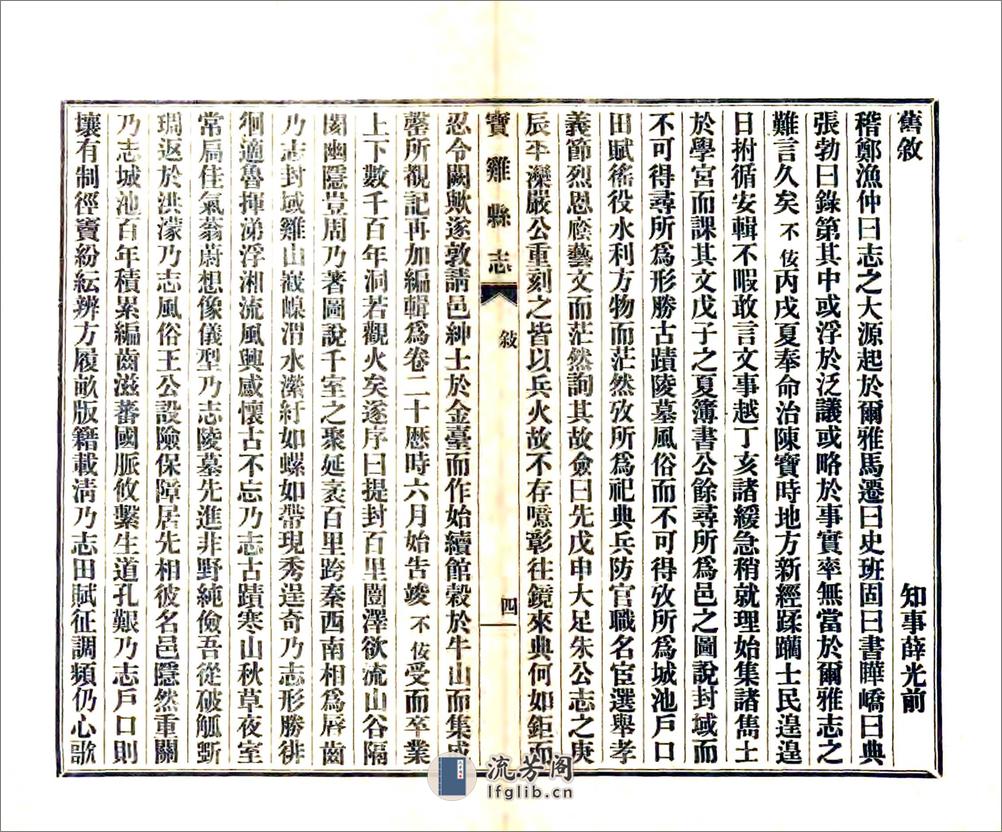 舊敘　知事薛光前
稽鄭漁仲曰志之大源起於爾雅馬遷曰史班固曰書曄嶠曰典
張勃曰錄第其中或浮於泛議或略於事實率無當於爾雅志之
難言久矣不佞丙戌夏奉命治陳寶時地方新經蹂躪士民遑遑
日拊循安輯不暇敢言文事越丁亥諸緩急稍就理始集諸雋士
於學宮而課其文戊子之夏簿書公餘尋所爲邑之圖說封域而
不可得尋所爲形勝古蹟陵墓風俗而不可得攷所爲城池戶口
田賦徭役水利方物而茫然攷所爲祀典兵防官職名宦選舉孝
義節烈恩廕藝文而茫然詢其故僉曰先戊申大足朱公志之庚
辰平灤嚴公重刻之皆以兵火故不存噫彰往鏡來典何如鉅而
寶雞縣志　敍　四
忍令闕欺遂敦請邑紳士於金臺而作始續館穀於牛山而集成
罄所覩記再加編輯爲卷二十歷時六月始告竣不佞受而卒業
上下數千百年洞若觀火矣遂序曰提封百里闓澤欲流山谷隔
閡幽隱豈周乃著圖說千室之聚延袤百里跨秦西南相爲脣齒
乃志封域雞山巀嵲渭水瀠紆如螺如帶現秀逞奇乃志形勝徘
徊適魯揮涕浮湘流風興感懷古不忘乃志古蹟寒山秋草夜室
常扃佳氣蓊蔚想像儀型乃志陵墓先進非野純儉吾從破觚斲
琱返於洪濛乃志風俗王公設險保障居先相彼名邑隱然重關
乃志城池百年積累編齒滋蕃國脈攸繫生道孔艱乃志戶口則
壤有制徑竇紛紜辨方履畝版籍載淸乃志田賦征調頻仍心歉
流芳阁
lfglib.cn